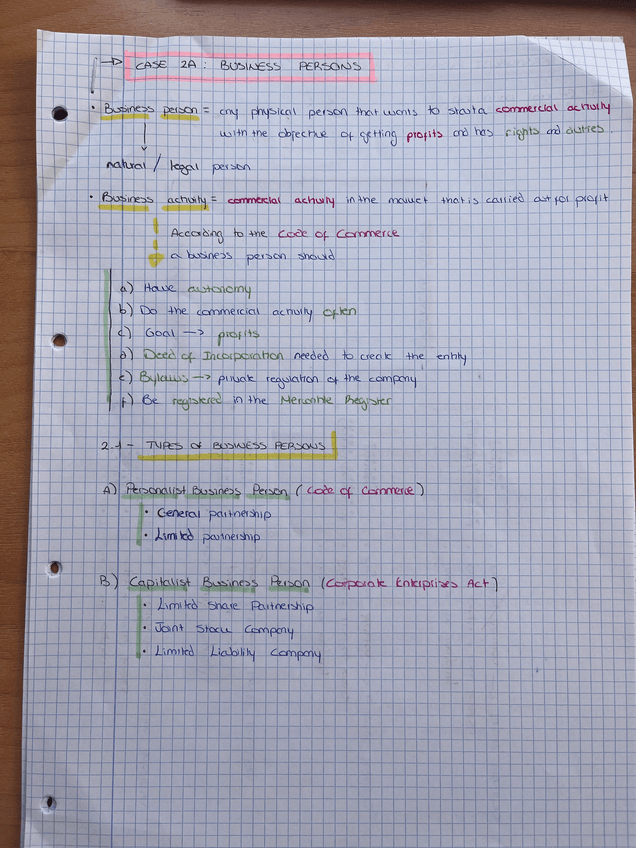 → CASE 2A: BUSINESS PERSONS
• Business person = any physical person that wants to start a commercial activity
with the objective of getting profits and has rights and duties.
natural / legal person
• Business activity = commercial activity in the market that is carried out for profit
According to the Code of Commerce
a business person should
a) Have autonomy
b) Do the commercial activity often
c) Goal → profits
d) Deed of Incorporation needed to create the entity
e) Bylaws → private regulation of the company
f) Be registered in the Mercantile Register
2.1- TYPES OF BUSINESS PERSONS
A) Personalist Business Person (Code of Commerce)
• General partnership
• Limited partnership
B) Capitalist Business Person (Corporate Enterprises Act)
• Limited Share Partnership
• Joint Stock Company
• Limited Liability Company